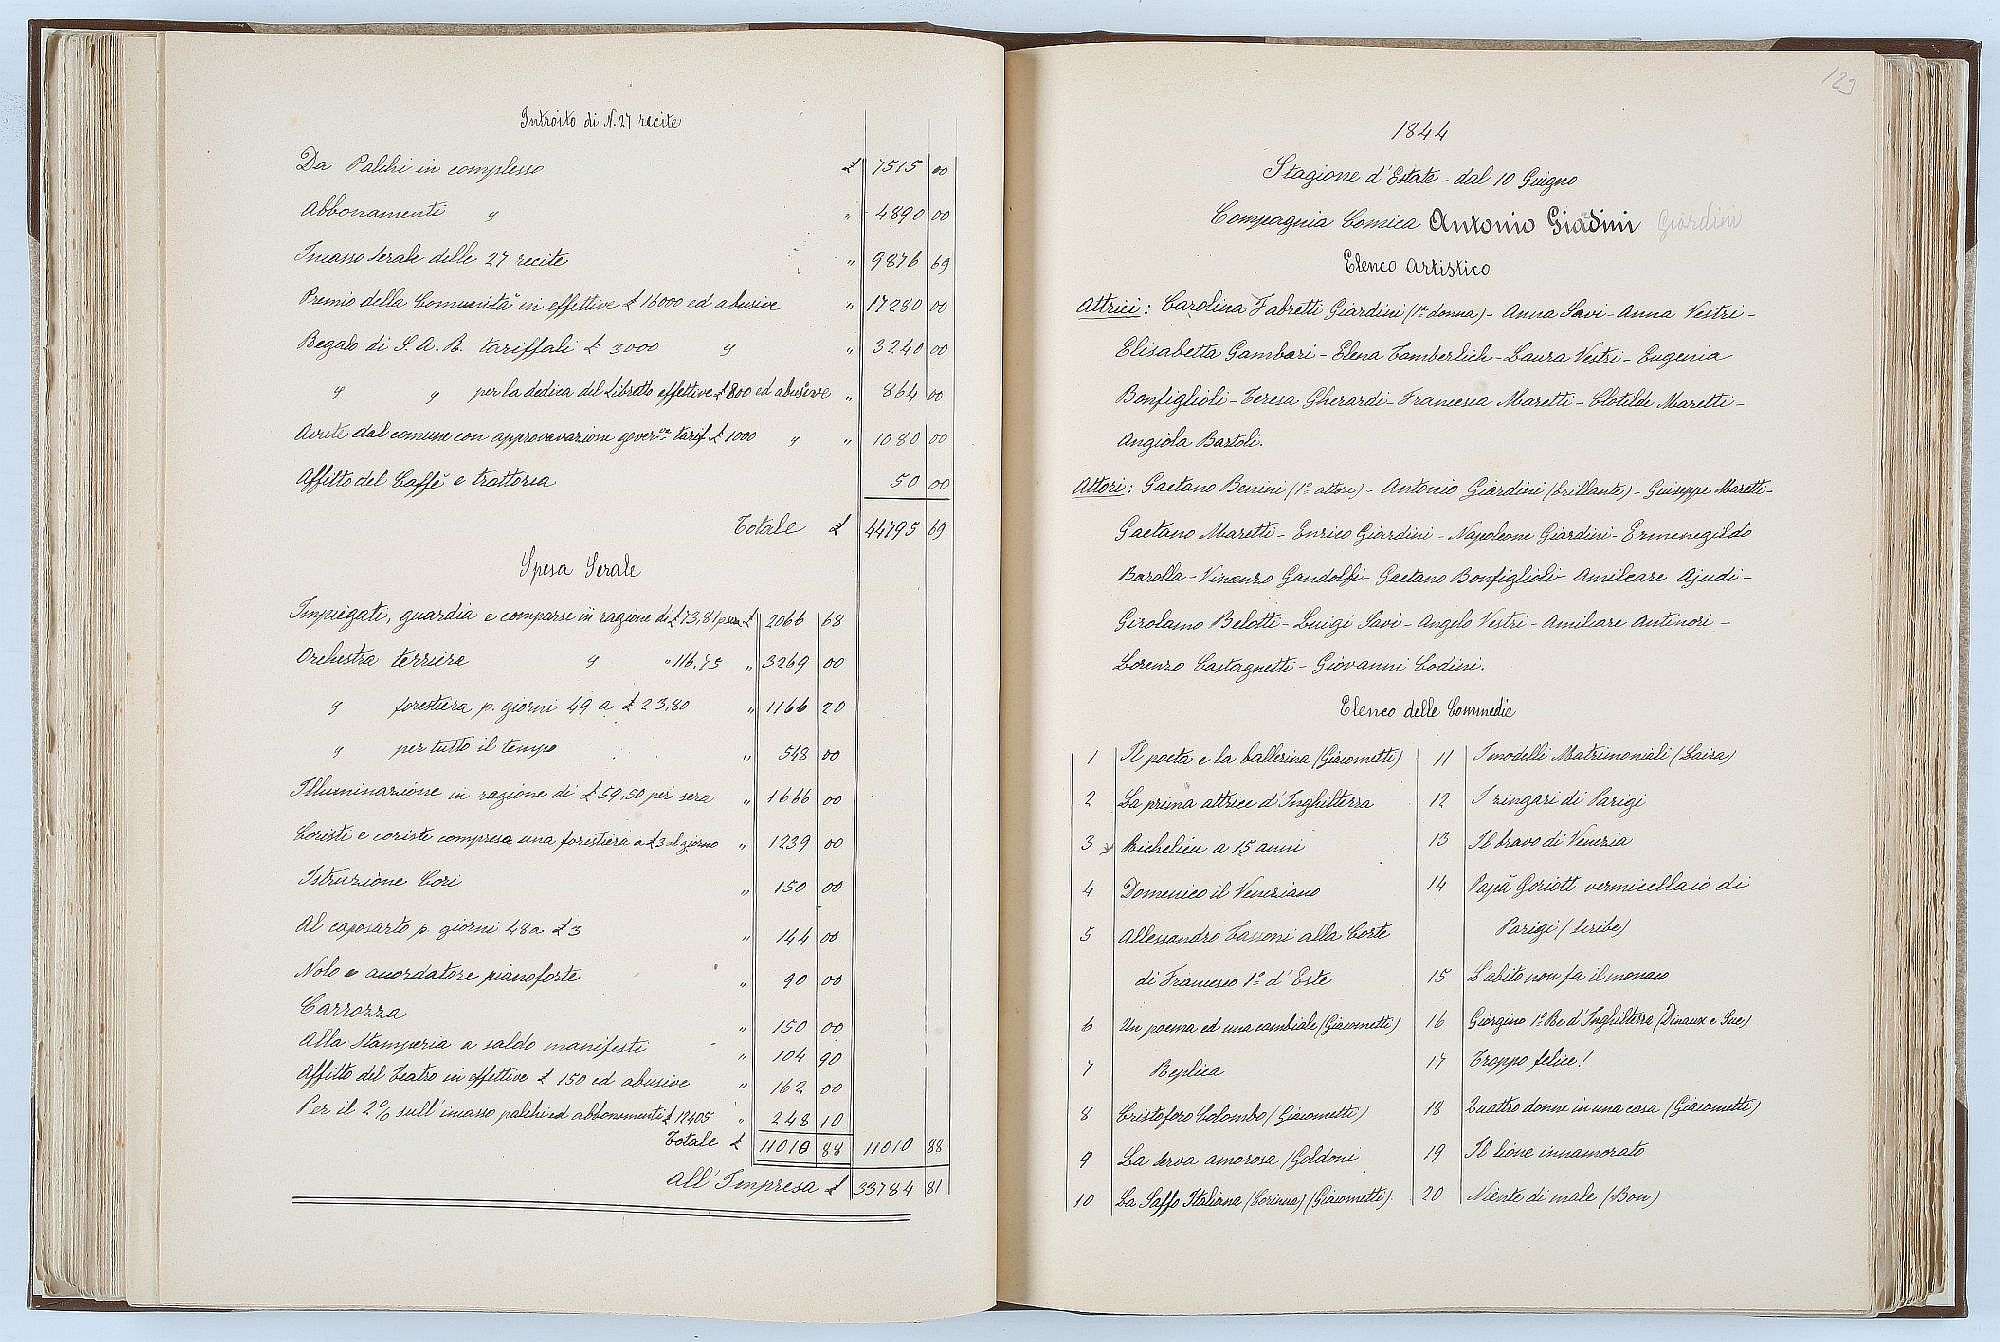 Introito di N. 27 recite
Da Palchi in complesso £ 7515 00
Abbonamenti " " 4890 00
Incasso serale delle 27 recite " 9876 69
Premio della Comunità in effettive £ 16000 ed abusive " 17280 00
Regalo di S. A. R. tariffali £ 3000 " " 3240 00
" " per la dedica del Libretto effettive £ 800 ed abusive " 864 00
dal comune con approvavazione tarif. £ 1000 " " 1080 00
Affitto del Caffè e trattoria 50 00
Totale £ 44795 69
Spesa Serale
Impiegati, guardia e comparse in ragione di £ 73,81 £ 2066 68
Orchestra terriera " " 116.75 " 3269 00
" forestiera p. giorni 49 a £ 23,80 " 1166 20
" per tutto il tempo " 548 00
Illuminazione in ragione di £ 59,50 per sera " 1666 00
Coristi e coriste compresa una forestiera a £3 al giorno " 1239 00
Istruzione Cori " 150 00
Al caposarto p. giorni 48 a £3 " 144 00
Nolo e accordatore pianoforte " 90 00
Carrozza " 150 00
Alla Stamperia a saldo manifesti " 104 90
Affitto del Teatro in effettive £ 150 ed abusive " 162 00
Per il 2% sull'incasso palchi ed abbonamenti £ 12405 " 248 10
Totale £ 11010 88 11010 88
All'Impresa £ 33784 81
123
1844
Stagione d'Estate - dal 10 Giugno
Compagnia Comica Antonio Giadini Giardini
Elenco Artistico
Attrici: Carolina Fabretti Giardini (1ª donna) - Anna Savi - Anna Vestri -
Elisabetta Gambari - Elena Tamberlich - Laura Vestri - Eugenia
Bonfiglioli - Teresa Gherardi - Francesca Maretti - Clotilde Maretti -
Angiola Bartoli.
Attori: Gaetano Benini (1º attore) - Antonio Giardini (brillante) - Giuseppe Maretti -
Gaetano Maretti - Enrico Giardini - Napoleone Giardini - Ermenegildo
Barolla - Vincenzo Gandolfi - Gaetano Bonfiglioli - Amilcare Ajudi -
Girolamo Belotti - Luigi Savi - Angelo Vestri - Amilcare Antinori -
Lorenzo Castagnetti - Giovanni Codini.
Elenco delle Commedie
1 Il poeta e la ballerina (Giacometti)
2 La prima attrice d'Inghilterra
3 Richelieu a 15 anni
4 Domenico il Veneziano
5 Allessandro Tassoni alla Corte
di Francesco 1º d'Este
6 Un poema ed una cambiale (Giacometti)
7 Replica
8 Cristoforo Colombo (Giacometti)
9 La serva amorosa (Goldoni
10 La Saffo Italiana (Corinna) (Giacometti)
11 I modelli Matrimoniali (Laira)
12 I zingari di Parigi
13 Il bravo di Venezia
14 Papà Goriott vermicellaio di
Parigi (Scribe)
15 L'abito non fa il monaco
16 Giorgino 1º Re d'Inghilterra (Dinaux e Sue)
17 Troppo felice!
18 Quattro donne in una casa (Giacometti)
19 Il lione innamorato
20 Niente di male (Bon)